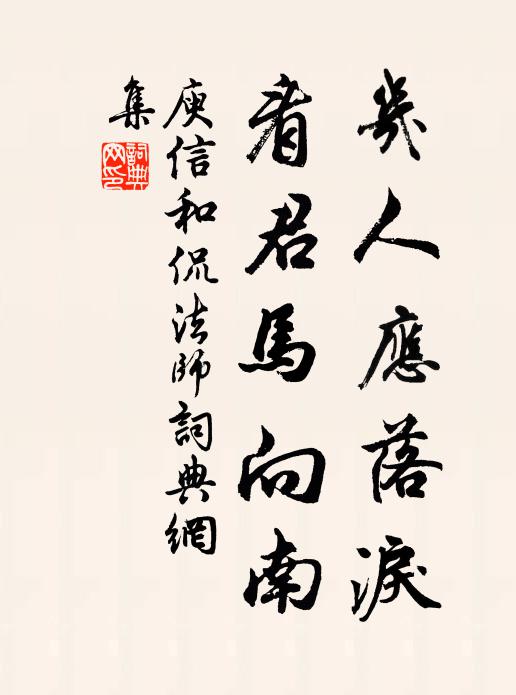 幾人應落淚
看君馬向南
庾信和侃法師詞典網
集
詞典網印